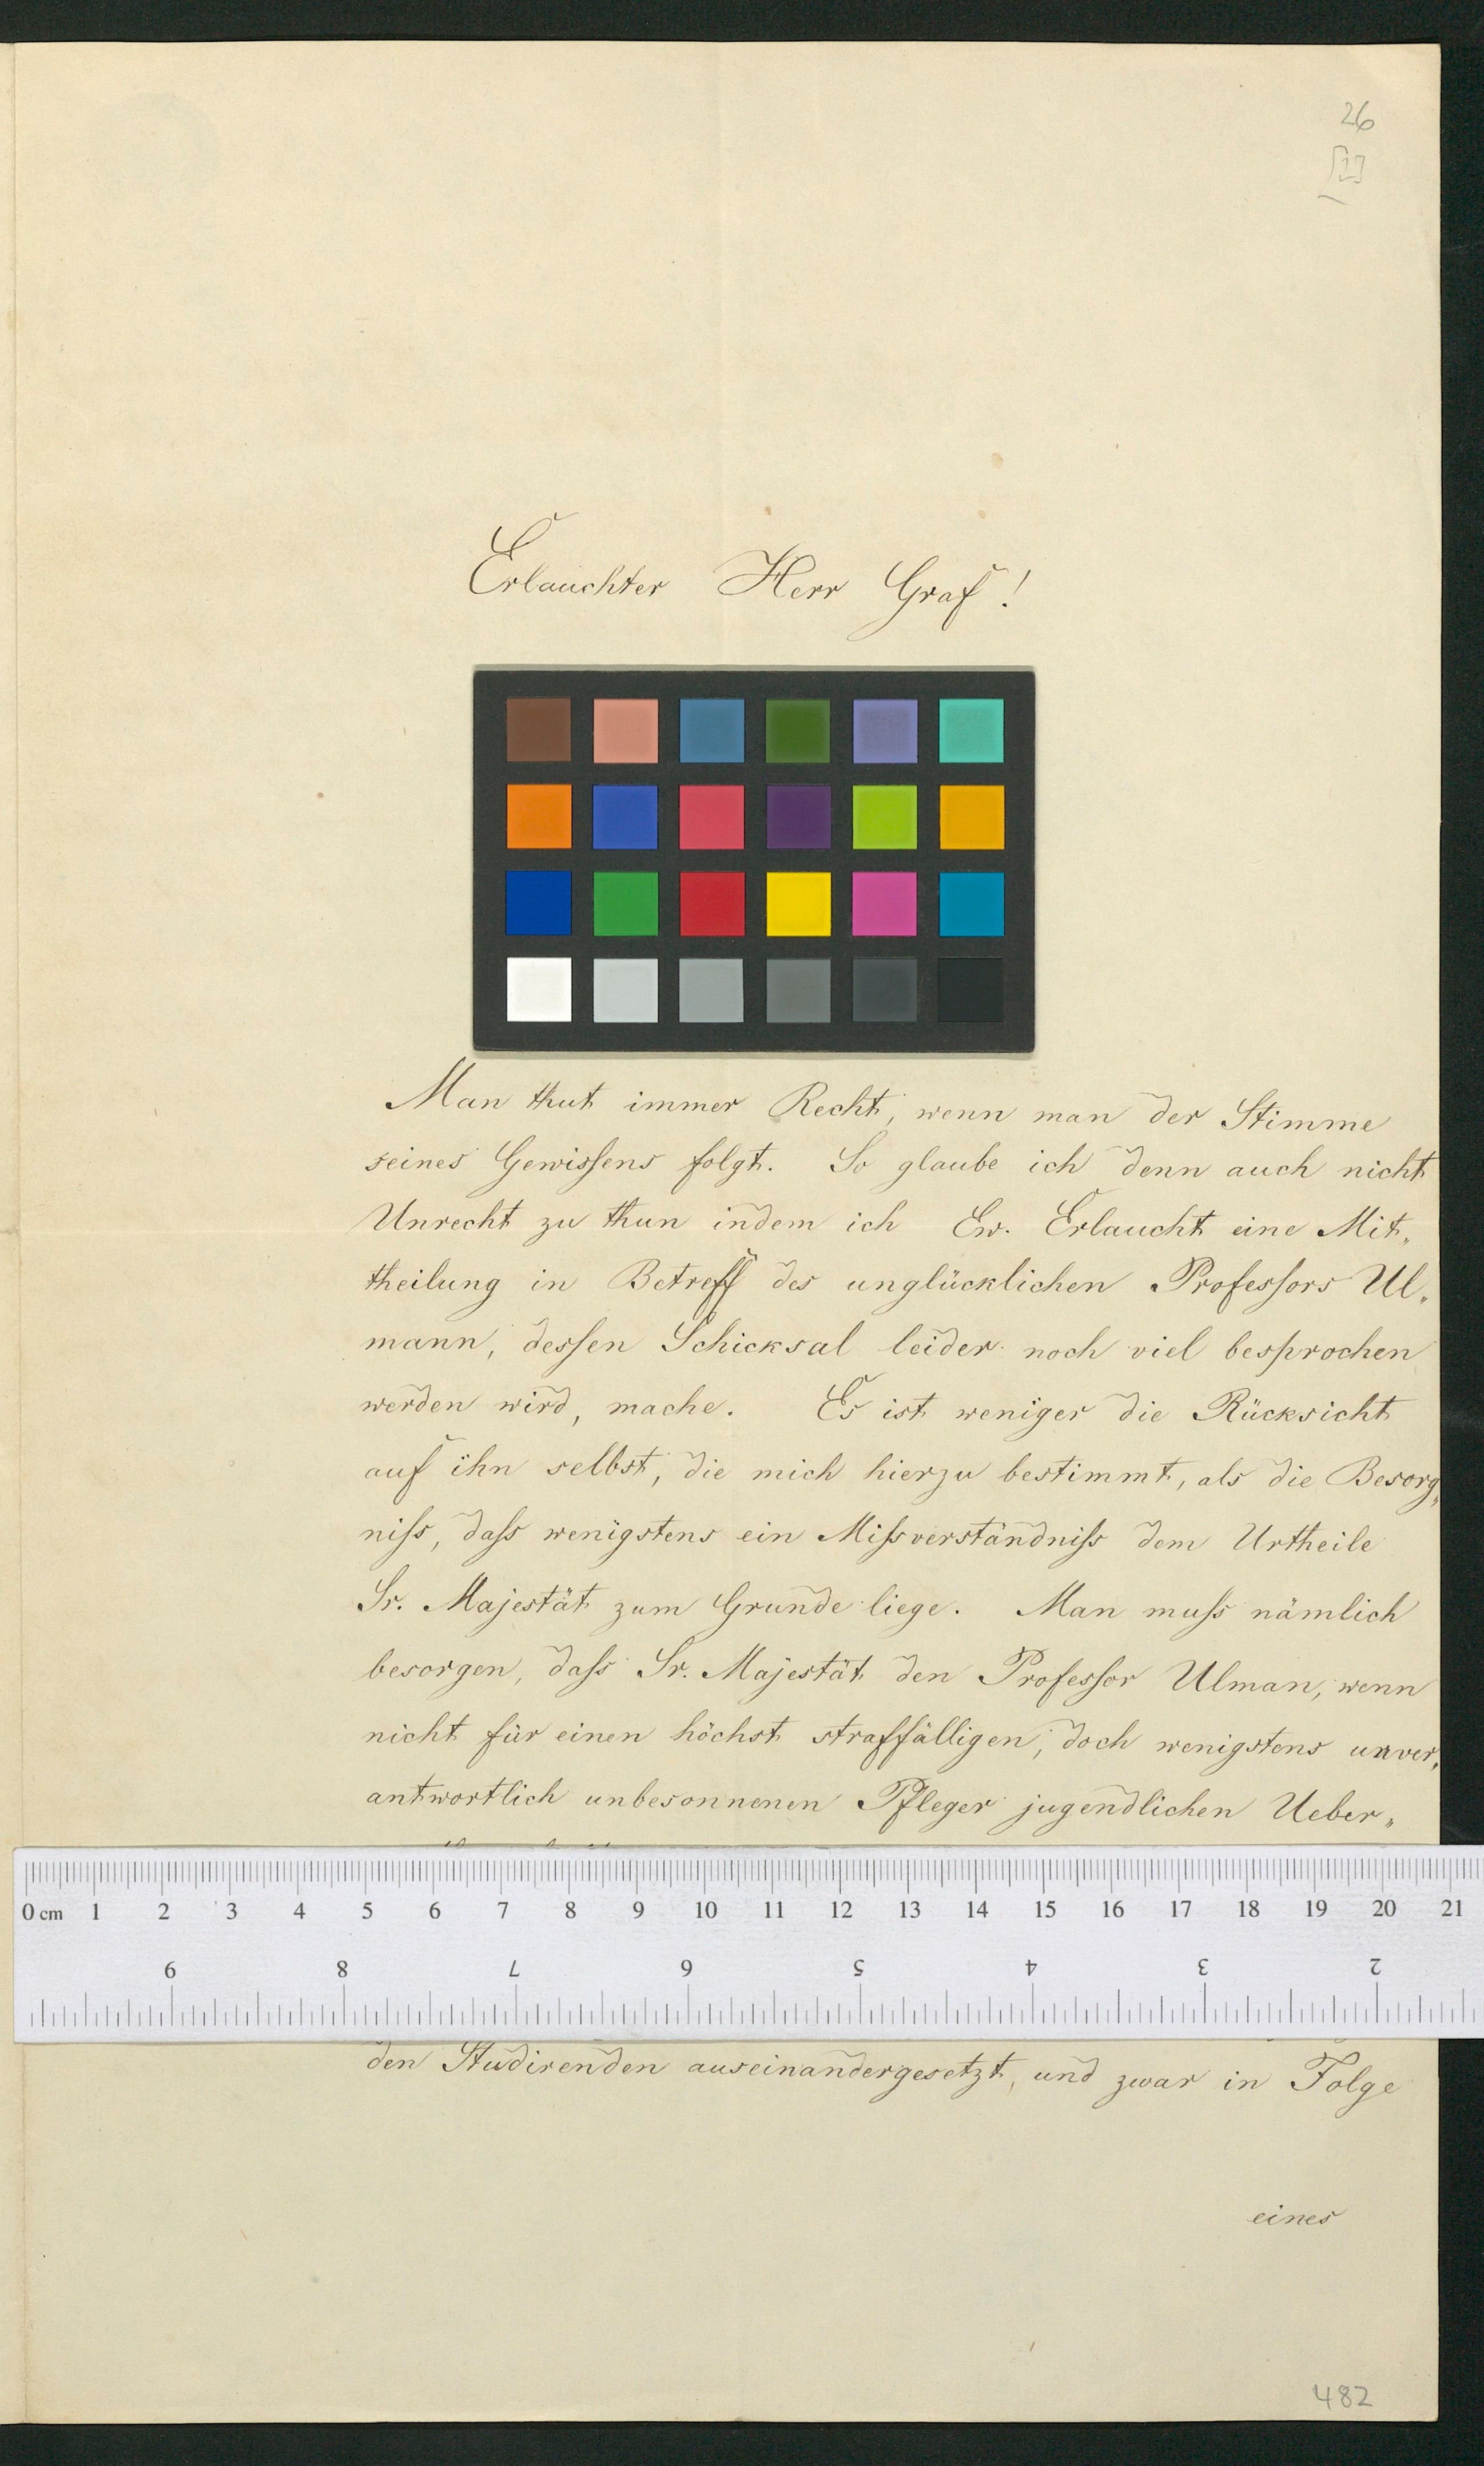 26
[1]
Erlauchter Herr Graf!
Man thut immer Recht, wenn man der Stimme
seines Gewissens folgt. So glaube ich denn auch nicht
Unrecht zu thun indem ich Ew. Erlaucht eine Mit„
theilung in Betreff des unglücklichen Professors Ul„
mann, dessen Schicksal leider noch viel besprochen
werden wird, mache. Es ist weniger die Rücksicht
auf ihn selbst, die mich hierzu bestimmt, als die Besorg„
niss, dass wenigstens ein Missverständniss dem Urtheile
Sr. Majestät zum Grunde liege. Man muss nämlich
besorgen, dass Sr. Majestät den Professor Ulman, wenn
nicht für einen höchst straffälligen, doch wenigstens unver„
antwortlich unbesonnenen Pfleger jugendlichen Ueber„
0 cm 1 2 3 4 5 6 7 8 9 10 11 12 13 14 15 16 17 18 19 20 21
9 8 7 6 5 4 3 2
den Studirenden auseinandergesetzt, und zwar in Folge
eines
482